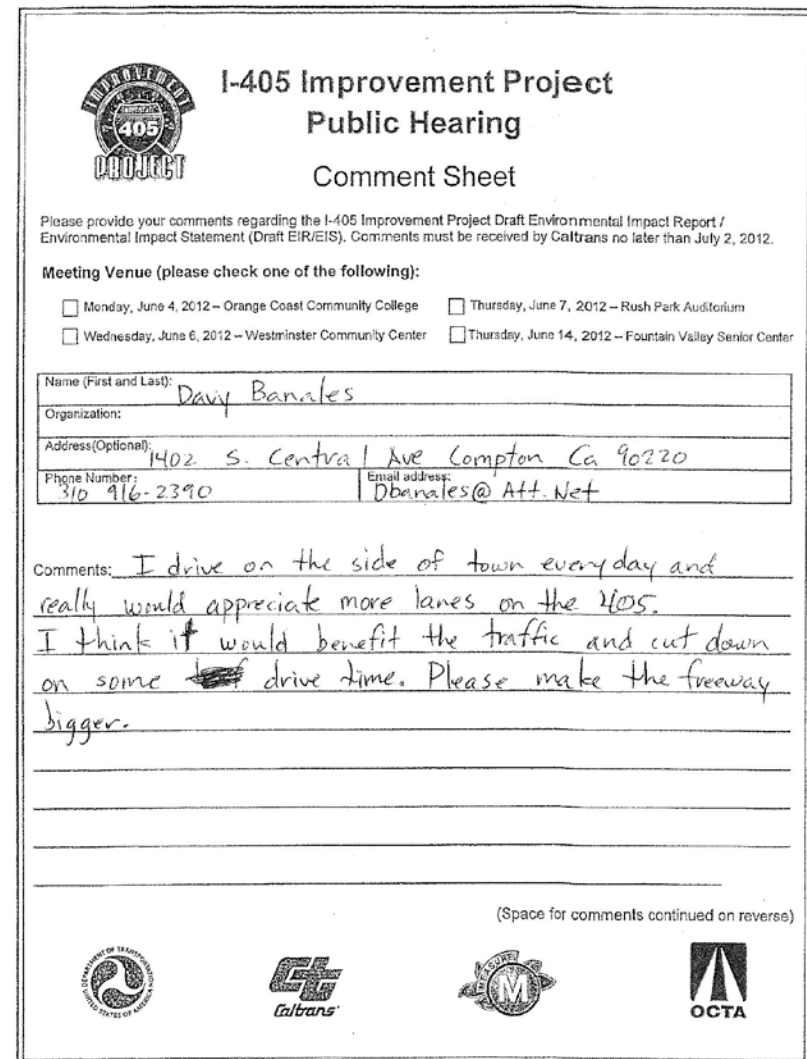 IMPROVEMENT
405
PROJECT
I-405 Improvement Project
Public Hearing
Comment Sheet
Please provide your comments regarding the I-405 Improvement Project Draft Environmental Impact Report /
Environmental Impact Statement (Draft EIR/EIS). Comments must be received by Caltrans no later than July 2, 2012.
Meeting Venue (please check one of the following):
Monday, June 4, 2012 – Orange Coast Community College
Thursday, June 7, 2012 – Rush Park Auditorium
Wednesday, June 6, 2012 – Westminster Community Center
Thursday, June 14, 2012 – Fountain Valley Senior Center
Name (First and Last): Davy Banales
Organization:
Address(Optional): 1402 S. Central Ave Compton Ca 90220
Phone Number: 310 916-2390
Email address: Dbanales@ Att.Net
Comments: I drive on the side of town everyday and
really would appreciate more lanes on the 405.
I think it would benefit the traffic and cut down
on some drive time. Please make the freeway
bigger.
(Space for comments continued on reverse)
DEPARTMENT OF TRANSPORTATION
UNITED STATES OF AMERICA
Caltrans
MEASURE
M
OCTA